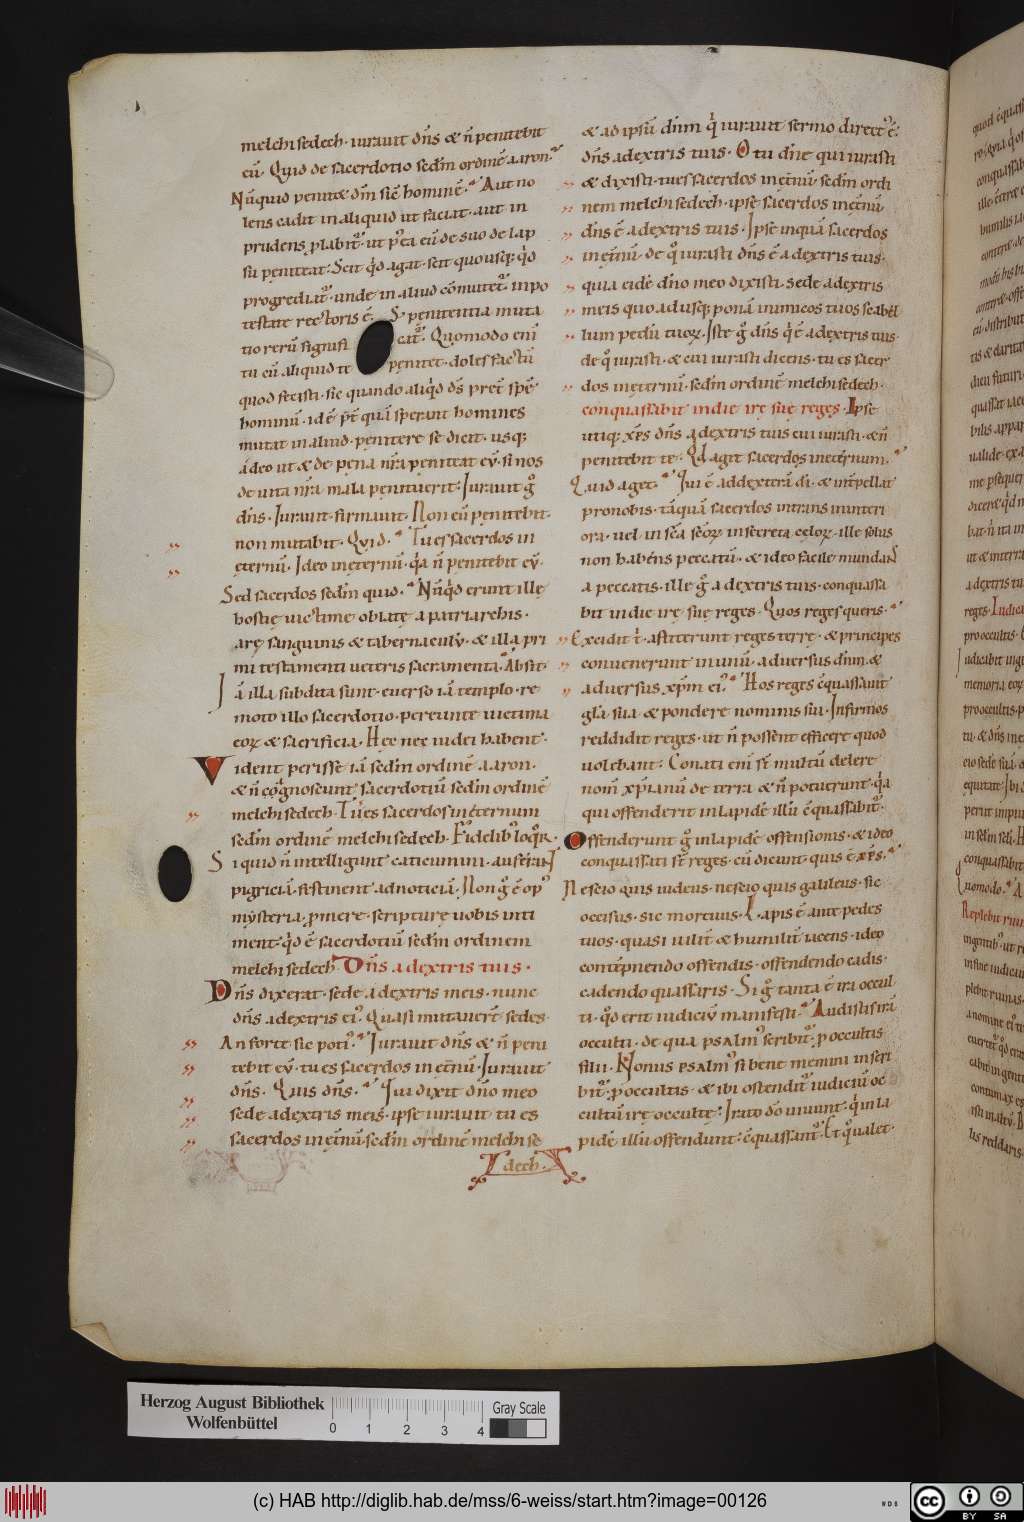 melchisedech· iurauit dn̄s & n̄ penitebit
eū· Quid de sacerdotio sedm̄ ordinē aaron·
Nūquid penit& dm̄ sic̄ hominē· Aut no
lens cadit in aliquid ut faciat· aut in
prudens p̱labit᷒· ut p᷒ea eū de suo de lap
su peniteat: Scit q̊d agat· scit quo usq;· q̊d
progrediat᷒· unde in aliud cōmutet᷒· inpo
testate rectoris ē· S; penitentia muta
tio rerū signifi cat᷒· Quomodo eni̅
tu cū aliquid te penitet· doles factū
quod fecisti· sic quando aliq̊d ds̄ pret̄ spē
hominū· id ē p̄t quā sperant homines
mutat in aliud· penitere se dicit· usq;
adeo ut & de pęna nr̄a peniteat eū· si nos
de uita nr̄a mala penituerit: Iurauit g̊
dn̄s· Iurauit· firmauit· Non eū penitebit·
non mutabit· Quid· Tu es sacerdos in
ęternū· Ideo in ęternū· q̇a n̄ penitebit eū·
Sed sacerdos sedm̄ quid· Nūq̊d erunt illę
hostię uictimę oblatę a patriarchis·
arę sanguinis & tabernaculū· & illa pri
mi testamenti ueteris sacramenta· Absit·
Iā illa subdita sunt· euerso iā templo· re
moto illo sacerdotio· pereunte uictima
eoꝝ & sacrificia· Hec nec iudei habent·
Vident perisse iā sedm̄ ordinē aaron·
& n̄ cog̊noscunt sacerdotiū sedm̄ ordinē
melchisedech· Tu es sacerdos in ęternum
sedm̄ ordinē melchisedech· Fidelib᷒ loq̊r·
Si quid n̄ intelligunt caticumini· auferant
pigriciā· festinent ad noticiā· Non g̊ ē op᷒
mysteria p̱mere· scripturę uobis inti
ment· q̊d ē sacerdotiū sedm̄ ordinem
melchisedech· Dn̄s a dextris tuis·
Dn̄s dixerat· sede a dextris meis· nunc
dn̄s a dextris ei᷒· Quasi mutauer̄t sedes·
An forte sic poti᷒· Iurauit dn̄s & n̄ peni
tebit eū· tu es sacerdos in et̄nū· Iurauit
dn̄s· Quis dn̄s· Qui dixit dn̄o meo
sede a dextris meis· ipse iurauit tu es
sacerdos in et̄nū sedm̄ ordinē melchise
dech·
& ad ipsū dnm̄ q̇ iurauit sermo direct᷒ ē·
dn̄s a dextris tuis· O tu dn̄e qui iurasti
& dixisti· tu es sacerdos in et̄nū· sedm̄ ordi
nem melchisedech· ipse sacerdos in et̄nū
dn̄s ē a dextris tuis· Ipse inquā sacerdos
in et̄nū· de q̊ iurasti dn̄s ē a dextris tuis·
quia eidē dn̄o meo dixisti· sede a dextris
meis quo adusq; ponā inimicos tuos scabel
lum pedū tuoꝝ· Iste g̊ dn̄s q̇ ē a dextris tuis·
de q̊ iurasti· & cui iurasti dicens· tu es sacer
dos in ęternū· sedm̄ ordinē melchisedech·
conquassabit in die irę suę reges· Ipse
utiq; xp̄s dn̄s a dextris tuis cui iurasti· & n̄
penitebit te· Q̊d agit sacerdos in eternum·
Quid aget· Qui ē ad dexterā di̅· & int̄pellat
pro nobis· tāquā sacerdos intrans in interi
ora· uel in sc̄a sc̄oꝝ in secreta cęloꝝ· ille solus
non habens peccatū· & ideo facile mundans
a peccatis· ille g̊ a dextris tuis· conquassa
bit in die irę suę reges· Quos reges queris·
Excidit t̄· astiterunt reges terrę· & principes
conuenerunt in unū· aduersus dnm̄· &
aduersus xp̄m ei᷒· Hos reges c̄quassauit
gl̄a sua & pondere nominis sui· Infirmos
reddidit reges· ut n̄ possent efficere quod
uolebant: Conati eni̅ st̄ multū delere
nom̄ xp̄ianū de terra· & n̄ potuerunt· q̇a
qui offenderit in lapidē illū c̄quassabit᷒·
Offenderunt g̊ in lapidē offensionis· & ideo
conquassati st̄ reges· cū dicunt quis ē xp̄s·
Nescio quis iudeus· nescio quis galileus· sic
occisus· sic mortuus· Lapis ē ante pedes
tuos· quasi uilit̄ & humilit̄ iacens· ideo
contēpnendo offendis· offendendo cadis·
cadendo quassaris· Si g̊ tanta ē ira occul
ta· q̊d erit iudiciū manifesti· Audistis irā
occulti· de qua psalm᷒ scribit᷒· p̱ occultis
filii· Nonus psalm᷒ si bene memini inscri
bit᷒· p̱ occultis· & ibi ostendit᷒ iudiciū oc
cultū irę occultę: Irato dō uiuunt· q̇ in la
pidē illū offendunt: c̄quassant᷒· Et q̊ ualet·
Herzog August Bibliothek
Wolfenbüttel
0 1 2 3 4
Gray Scale
(c) HAB http://diglib.hab.de/mss/6-weiss/start.htm?image=00126
WDB
cc
BY SA